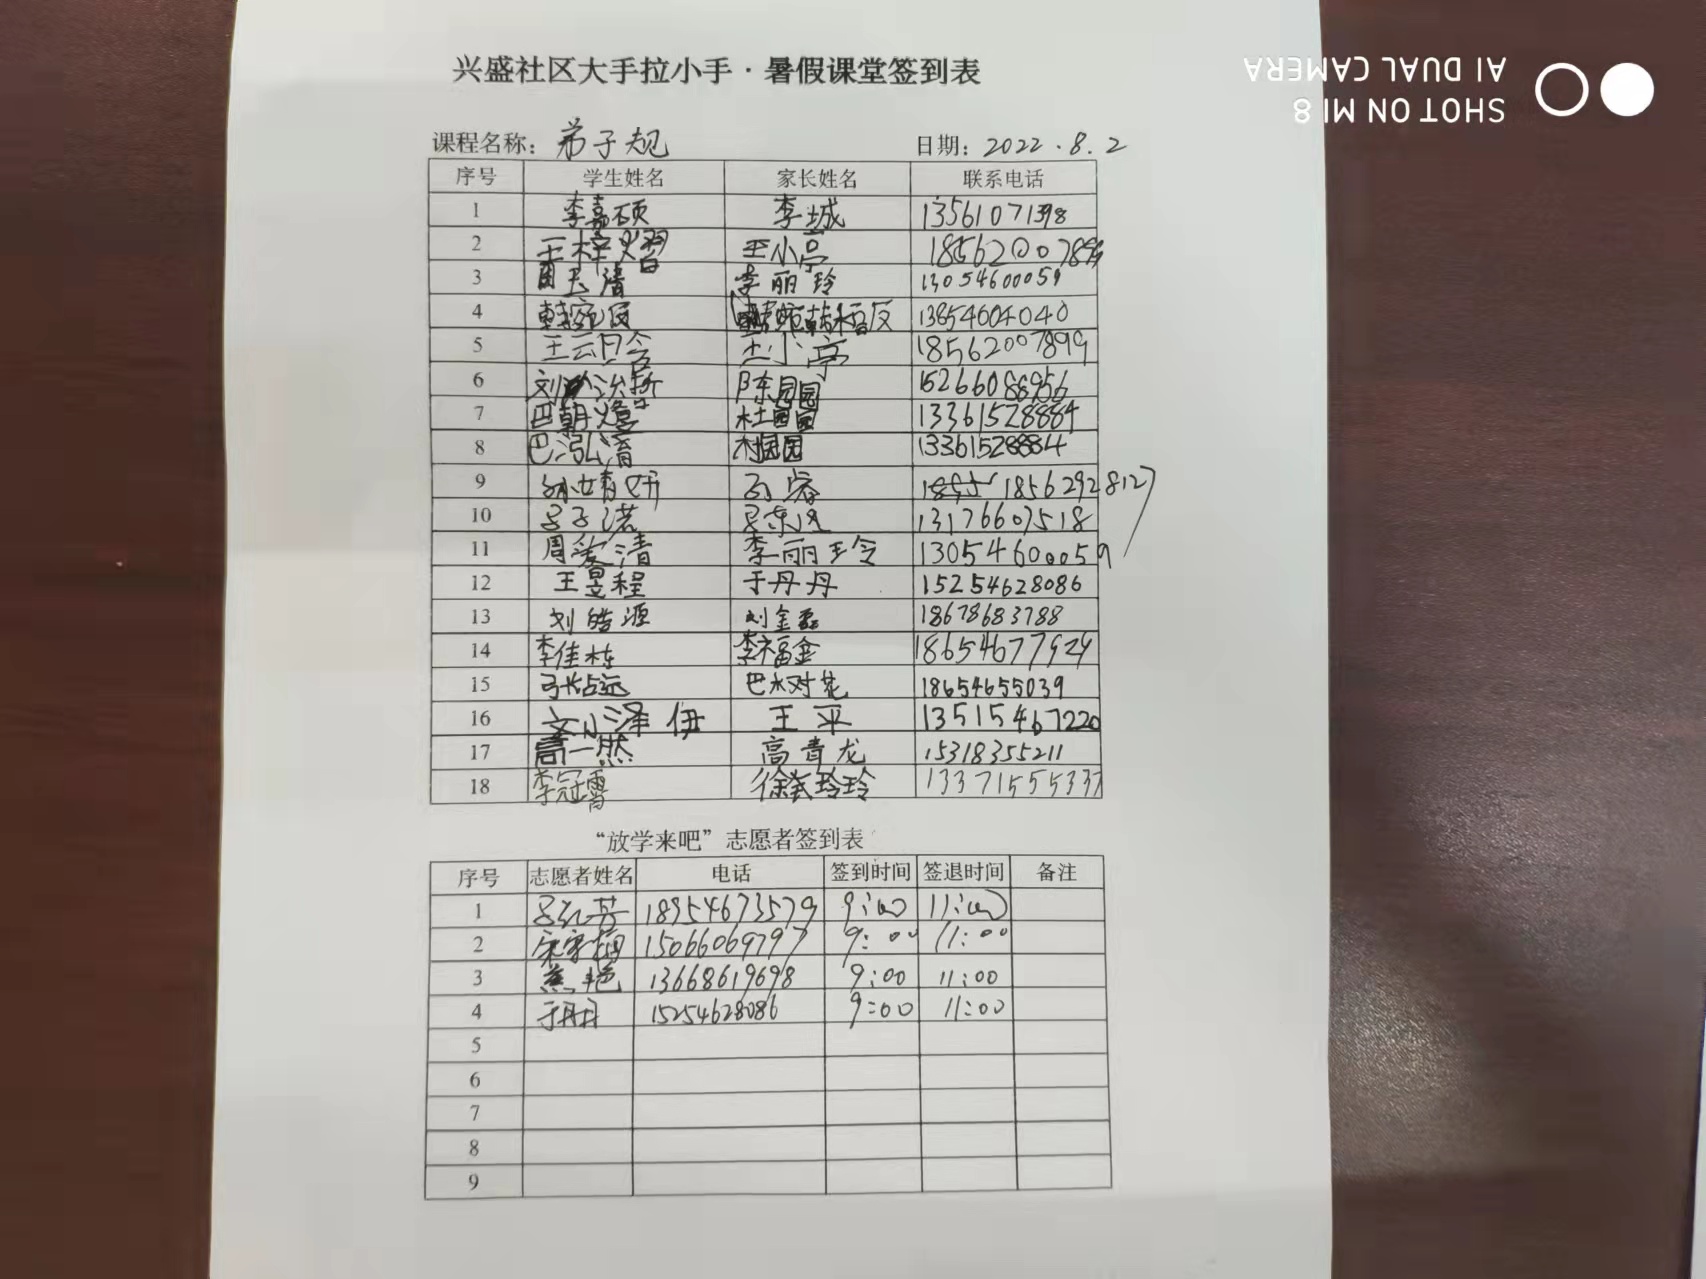 兴盛社区大手拉小手·暑假课堂签到表
课程名称：弟子规 日期：2022.8.2
序号 学生姓名 家长姓名 联系电话
1 李嘉硕 李城
2 王梓熠 王小亭 18562007899
3 周玉清 李丽玲 13054600059
4 13854604040
5 王云晗 王小亭 18562007899
6 刘洺哲 陈园园 15266086956
7 巴朝熳 杜园园 13361528884
8 巴泓淯 杜园园 13361528884
9 孙婧妍 孙容 18562928127
10 吕子诺 13176607518
11 周爱清 李丽玲 13054600059
12 王昱程 于丹丹 15254628086
13 刘皓源 刘金磊 18678683788
14 李佳栋 李福金 18654677929
15 张占远 巴树花 18654655039
16 刘泽伊 王平 13515467220
17 高一然 高青龙 15318355211
18 李冠霄 徐玲玲 13371555337
“放学来吧”志愿者签到表
序号 志愿者姓名 电话 签到时间 签退时间 备注
1 18954673579 9:00 11:00
2 15066069797 9:00 11:00
3 燕艳 13668619698 9:00 11:00
4 于丹丹 15254628086 9:00 11:00
5
6
7
8
9
SHOT ON MI 8
AI DUAL CAMERA